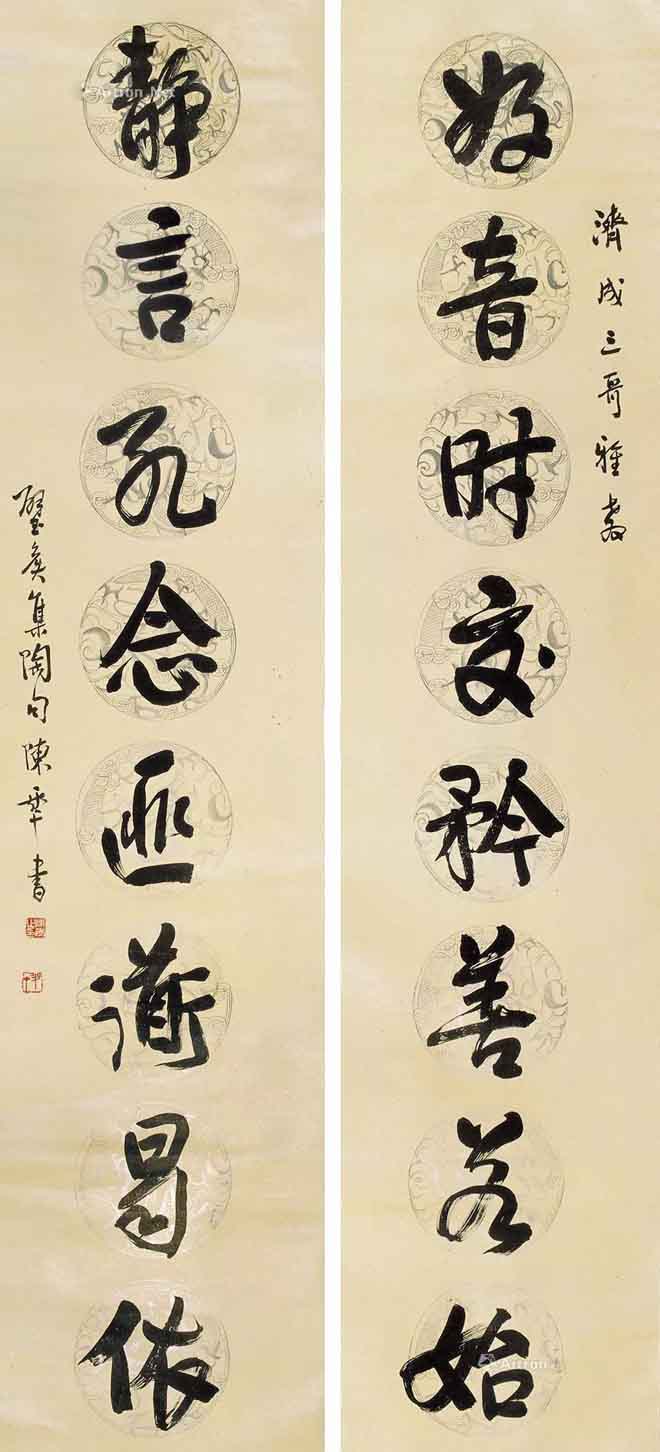 濟成三哥雅教
好音时交矜善若始
静言孔念匪道曷依
集陶句陳書
Artron.Net
Artron